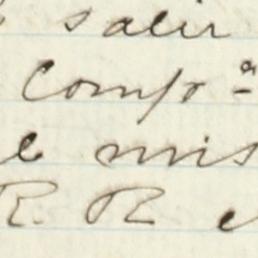 salir
Comp.ª
mis
R. R